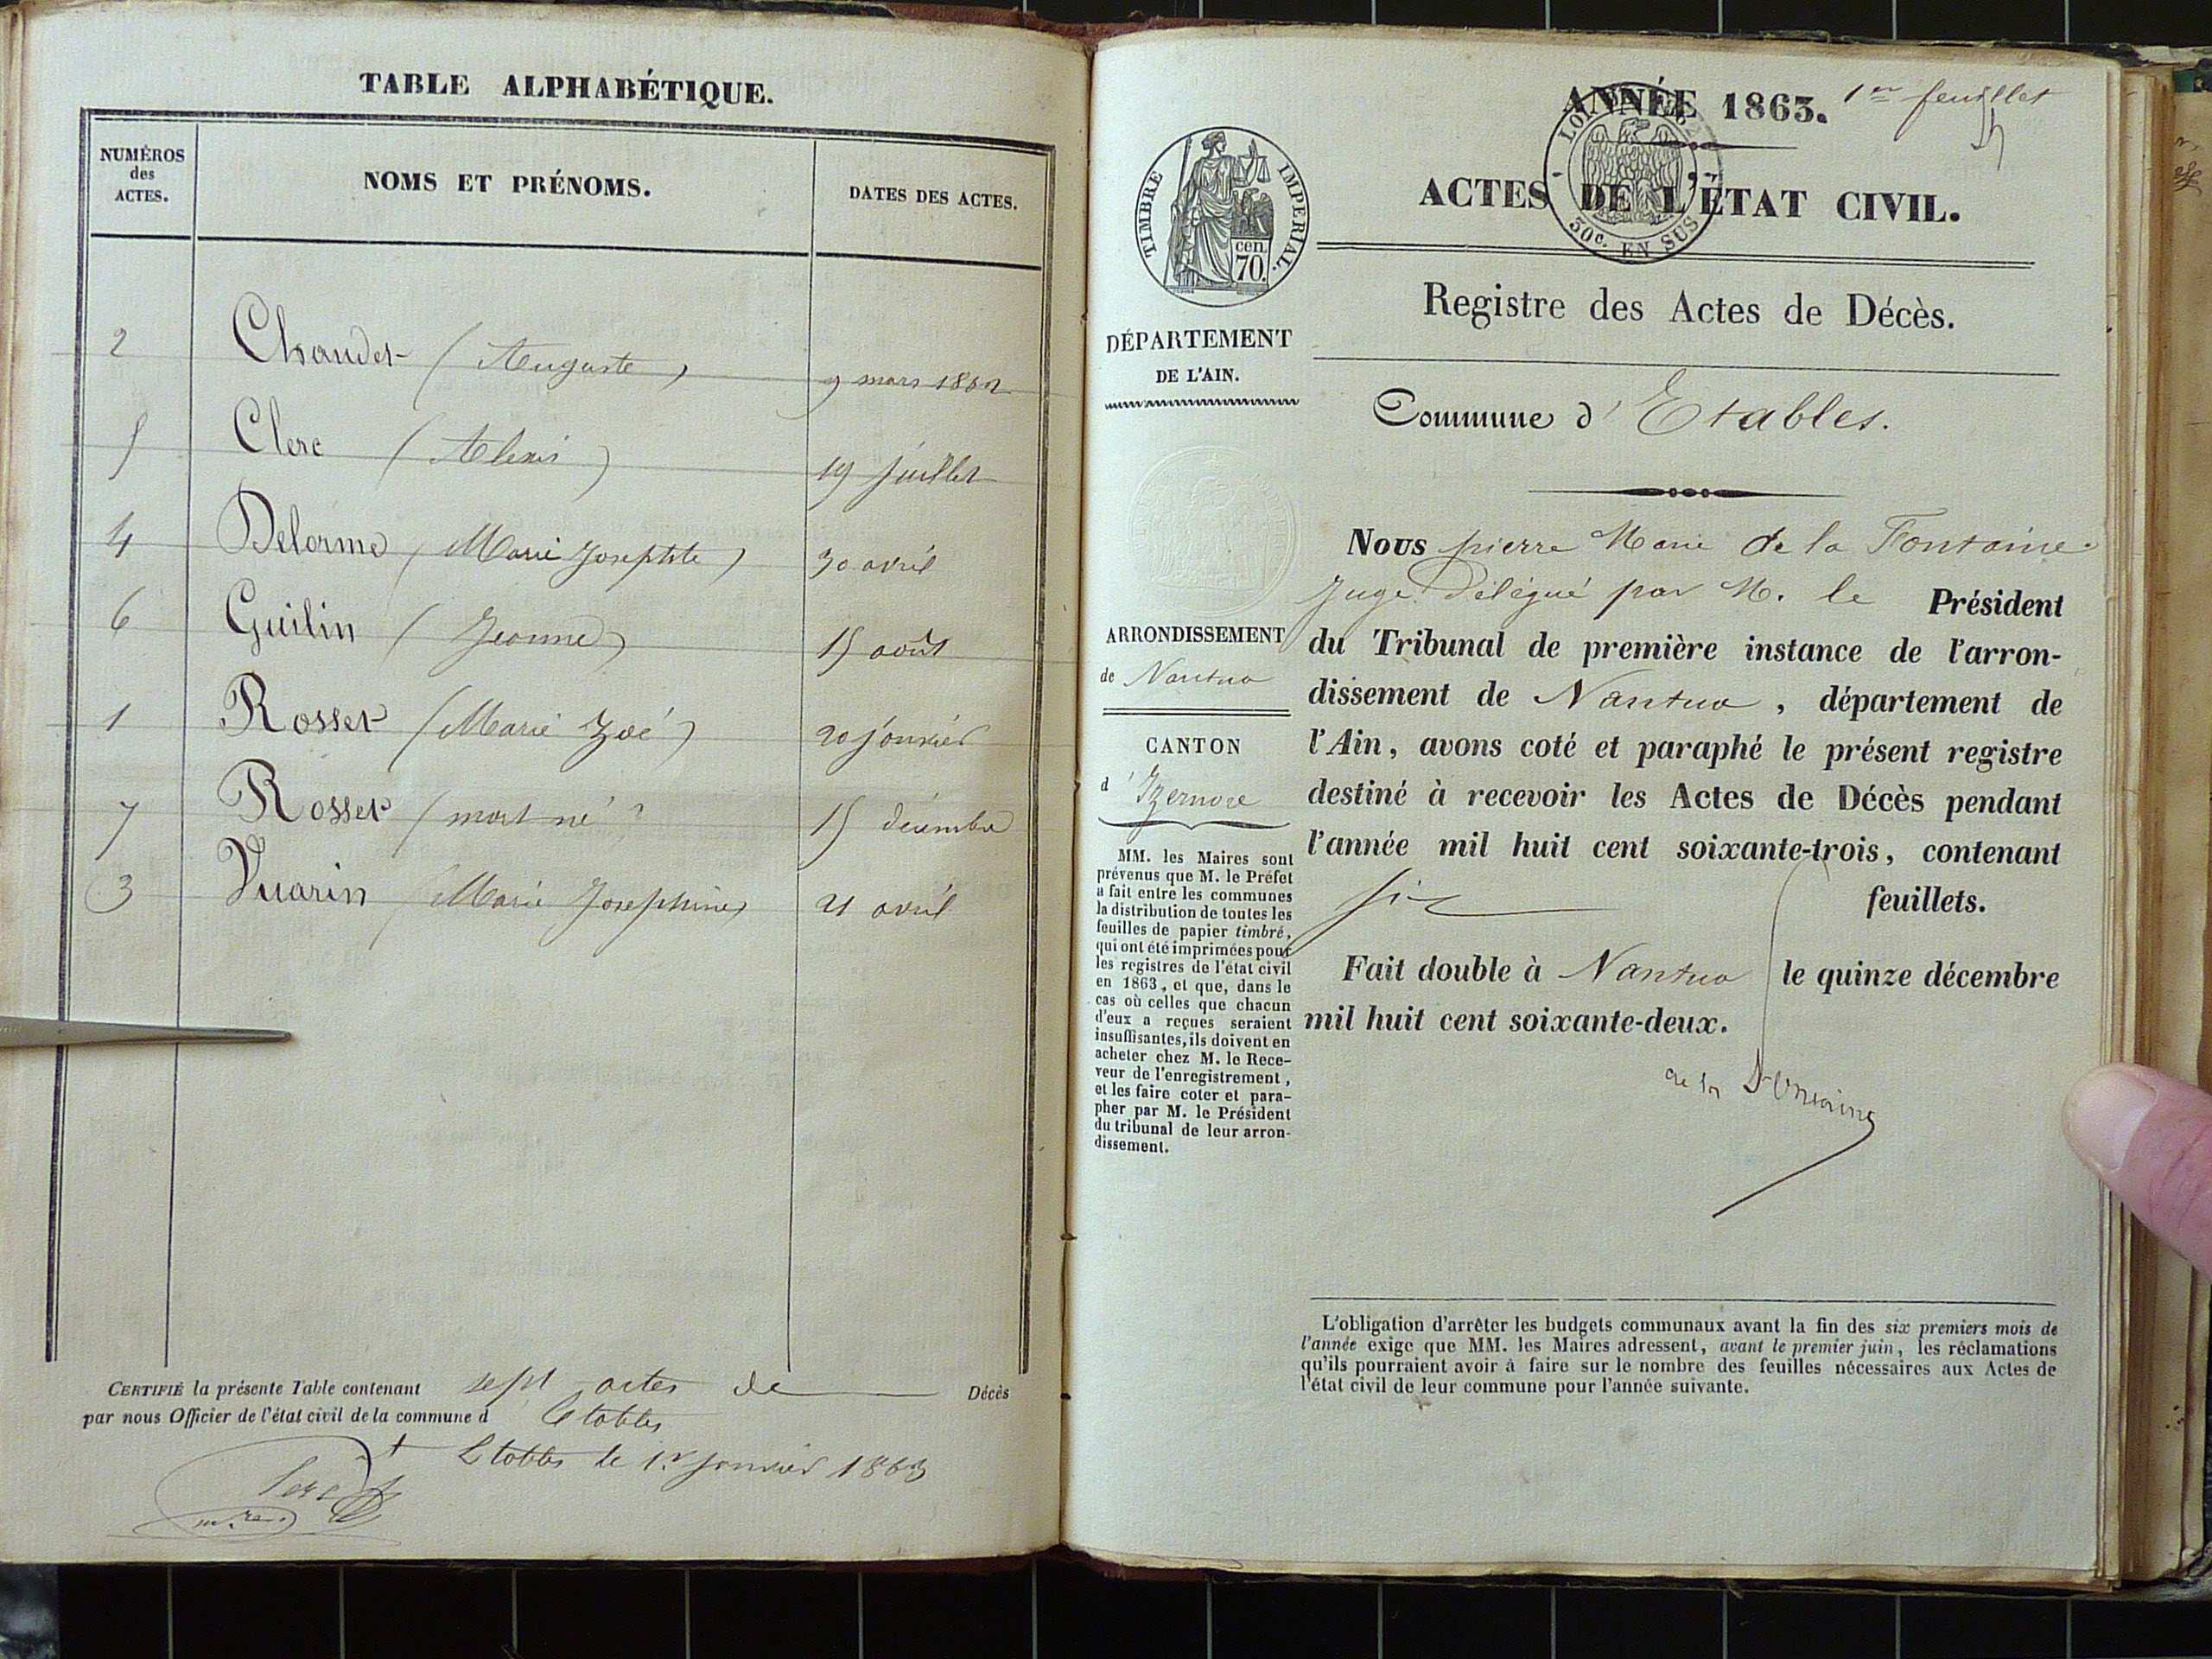 TABLE ALPHABÉTIQUE.
NUMÉROS
des
ACTES.
NOMS ET PRÉNOMS.
DATES DES ACTES.
2 Chaudet (Auguste) 9 mars 1862
5 Clerc (Alexis) 19 juillet
4 Delorme (Marie Josephte) 30 avril
6 Guilin (Jeanne) 15 août
1 Rosset (Marie Zoé) 20 janvier
7 Rosset (mort né) 15 décembre
3 Vuarin (Marie Josephine) 21 avril
CERTIFIÉ la présente Table contenant sept actes de Décès
par nous Officier de l'état civil de la commune d Etables
Etables le 1er janvier 1863
ANNÉE 1863. 1er feuillet
TIMBRE IMPERIAL.
cen.
70.
30c. EN SUS
ACTES DE L'ÉTAT CIVIL.
Registre des Actes de Décès.
DÉPARTEMENT
DE L'AIN.
Commune d'Etables.
ARRONDISSEMENT
de Nantua
CANTON
d'Izernore
MM. les Maires sont
prévenus que M. le Préfet
a fait entre les communes
la distribution de toutes les
feuilles de papier timbré,
qui ont été imprimées pour
les registres de l'état civil
en 1863, et que, dans le
cas où celles que chacun
d'eux a reçues seraient
insuffisantes, ils doivent en
acheter chez M. le Rece-
veur de l'enregistrement,
et les faire coter et para-
pher par M. le Président
du tribunal de leur arron-
dissement.
Nous pierre Marie de la Fontaine
Juge Délégué par M. le Président
du Tribunal de première instance de l'arron-
dissement de Nantua, département de
l'Ain, avons coté et paraphé le présent registre
destiné à recevoir les Actes de Décès pendant
l'année mil huit cent soixante-trois, contenant
six feuillets.
Fait double à Nantua le quinze décembre
mil huit cent soixante-deux.
de la Fontaine
L'obligation d'arrêter les budgets communaux avant la fin des six premiers mois de
l'année exige que MM. les Maires adressent, avant le premier juin, les réclamations
qu'ils pourraient avoir à faire sur le nombre des feuilles nécessaires aux Actes de
l'état civil de leur commune pour l'année suivante.